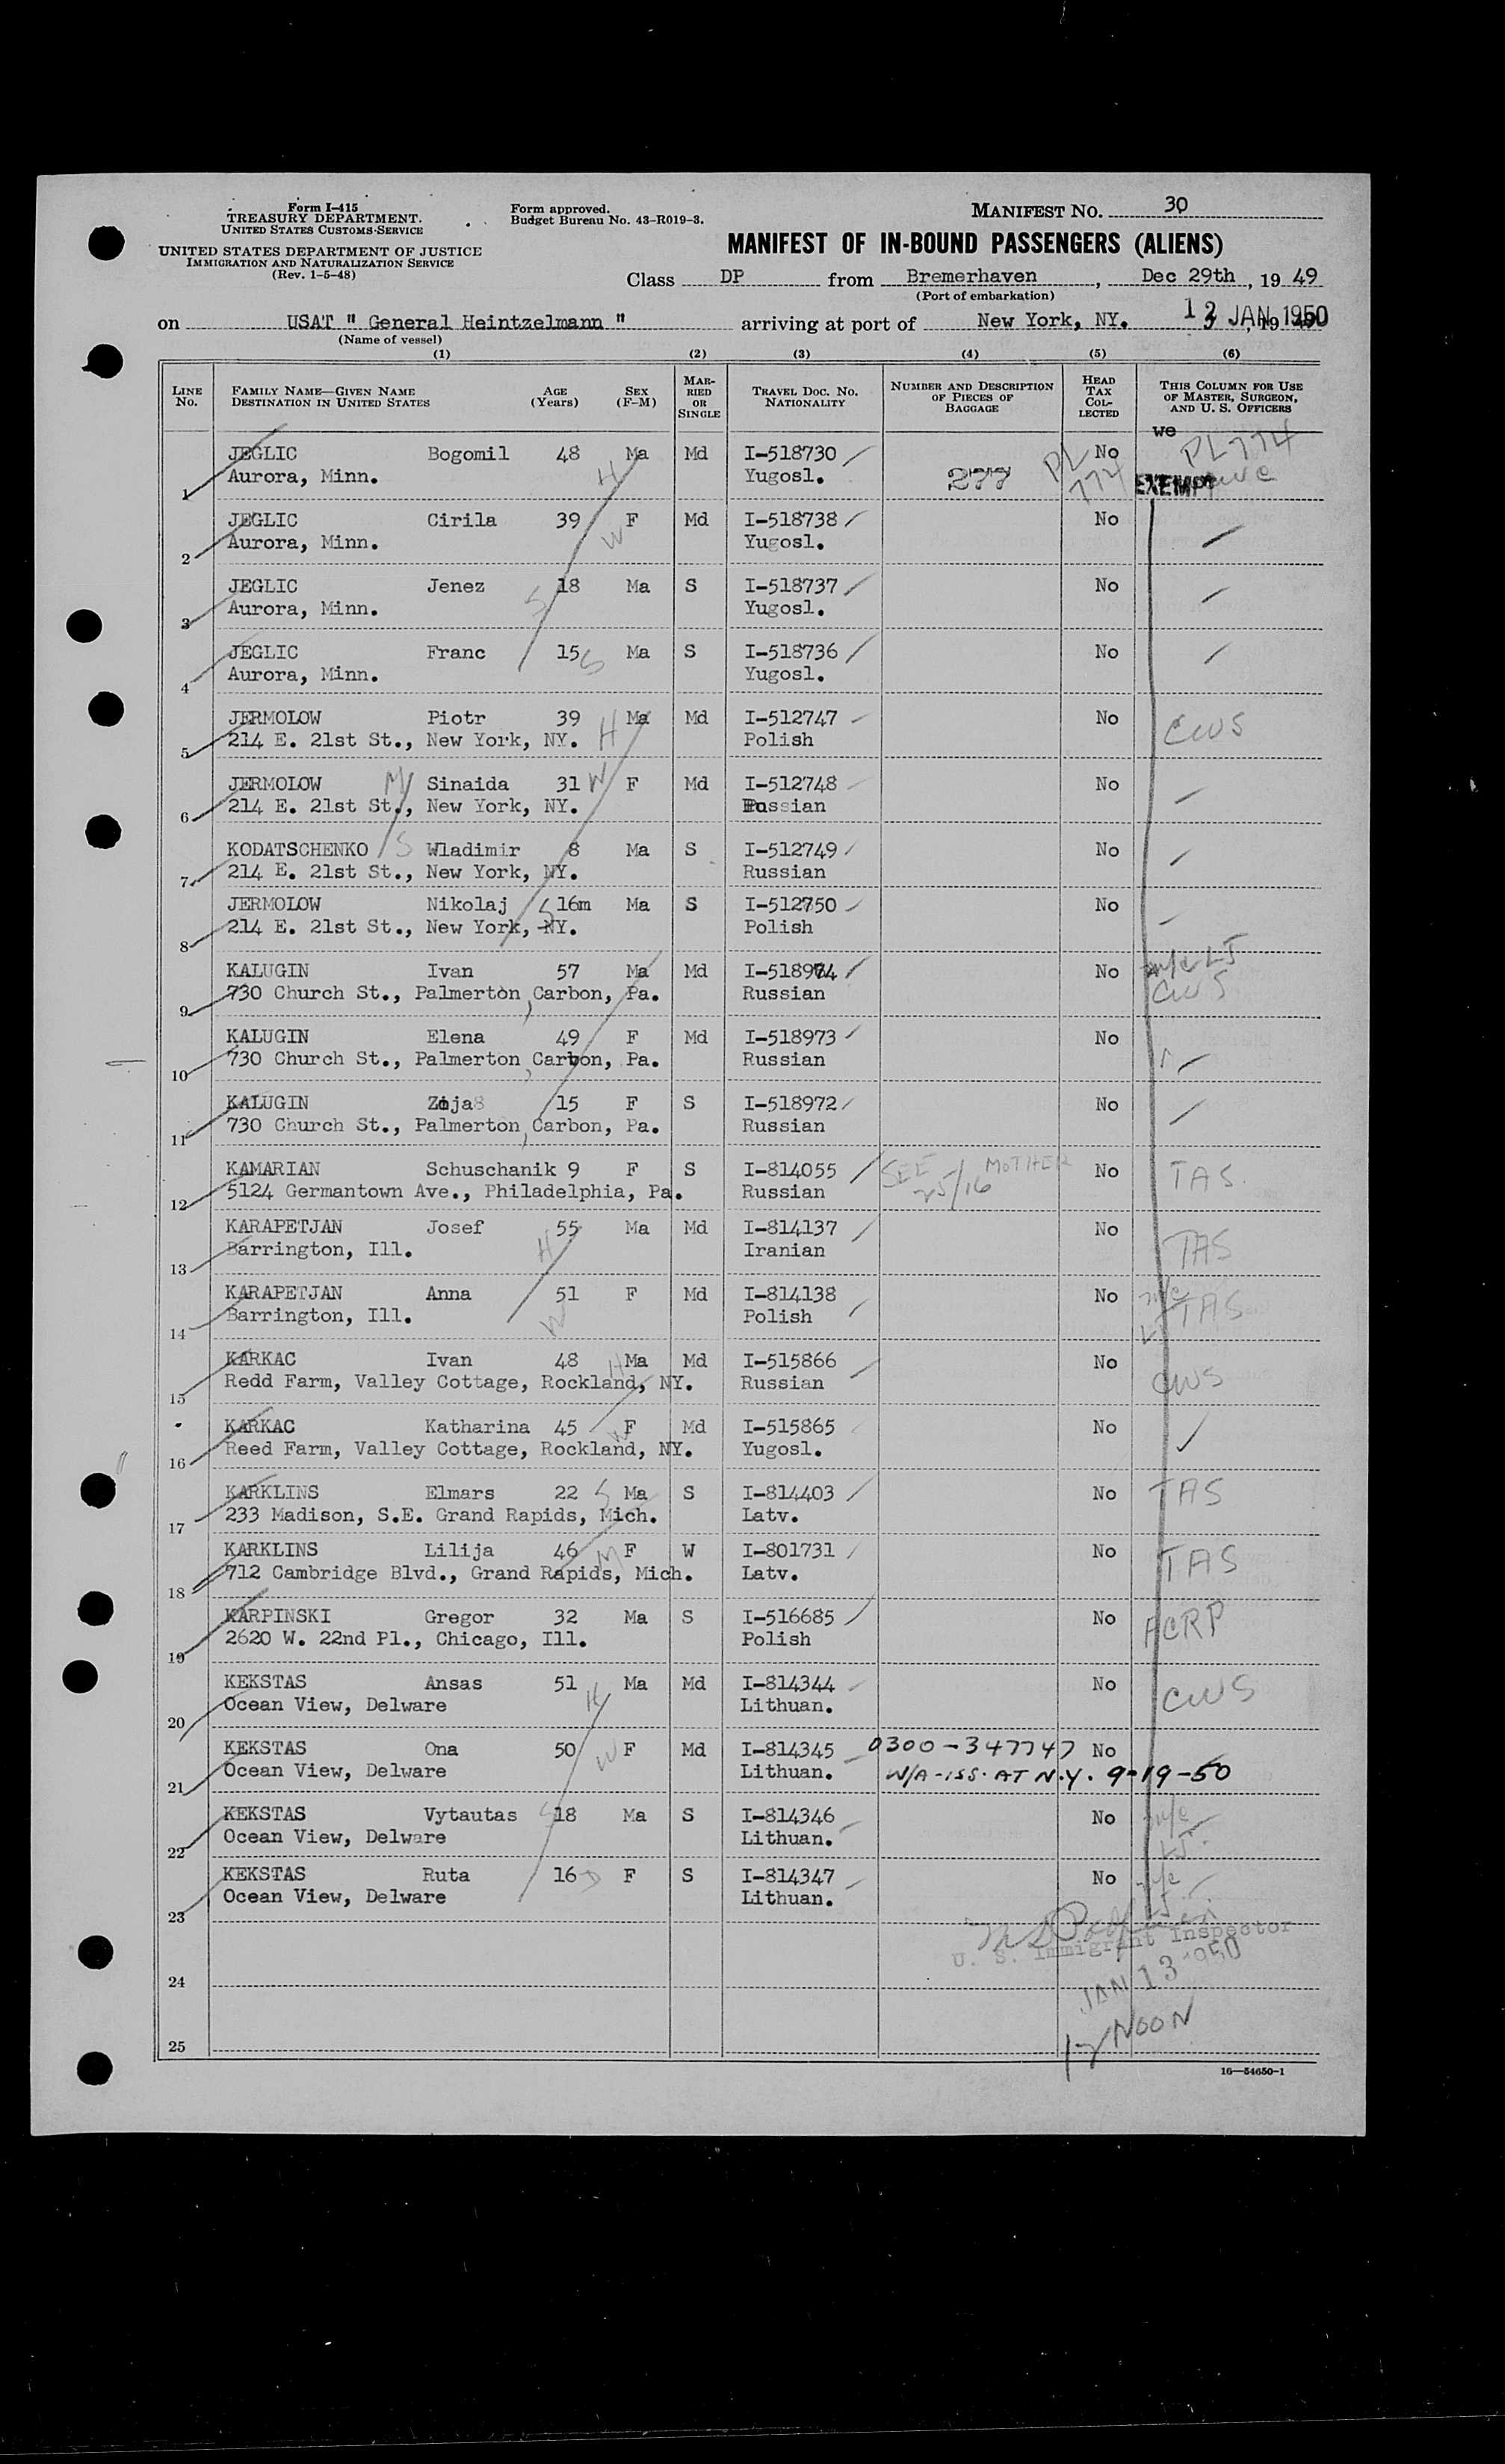 Form I-415
TREASURY DEPARTMENT.
UNITED STATES CUSTOMS SERVICE
UNITED STATES DEPARTMENT OF JUSTICE
IMMIGRATION AND NATURALIZATION SERVICE
(Rev. 1-5-48)
Form approved.
Budget Bureau No. 43-R019-3.
MANIFEST NO. 30
MANIFEST OF IN-BOUND PASSENGERS (ALIENS)
Class DP from Bremerhaven, Dec 29th, 19 49
(Port of embarkation)
on USAT " General Heintzelmann " arriving at port of New York, NY. JAN 1950
(Name of vessel)
(1) (2) (3) (4) (5) (6)
LINE No. FAMILY NAME—GIVEN NAME DESTINATION IN UNITED STATES AGE (Years) SEX (F-M) MARRIED OR SINGLE TRAVEL DOC. No. NATIONALITY NUMBER AND DESCRIPTION OF PIECES OF BAGGAGE HEAD TAX COLLECTED THIS COLUMN FOR USE OF MASTER, SURGEON, AND U. S. OFFICERS
we
JEGLIC Bogomil 48 Ma Md I-518730 No PL 774
1 Aurora, Minn. H Yugosl. 277 PL 774 EXEMPT
JEGLIC Cirila 39 F Md I-518738 No
2 Aurora, Minn. W Yugosl.
JEGLIC Jenez 18 Ma S I-518737 No
3 Aurora, Minn. S Yugosl.
JEGLIC Franc 15 S Ma S I-518736 No
4 Aurora, Minn. Yugosl.
JERMOLOW Piotr 39 Ma Md I-512747 No CWS
5 214 E. 21st St., New York, NY. H Polish
JERMOLOW M Sinaida 31 W F Md I-512748 No
6 214 E. 21st St., New York, NY. Russian
KODATSCHENKO S Wladimir 8 Ma S I-512749 No
7 214 E. 21st St., New York, NY. Russian
JERMOLOW Nikolaj S 16m Ma S I-512750 No
8 214 E. 21st St., New York, NY. Polish
KALUGIN Ivan 57 Ma Md I-518974 No
9 730 Church St., Palmerton, Carbon, Pa. Russian CWS
KALUGIN Elena 49 F Md I-518973 No
10 730 Church St., Palmerton, Carbon, Pa. Russian
KALUGIN Zoja 15 F S I-518972 No
11 730 Church St., Palmerton, Carbon, Pa. Russian
KAMARIAN Schuschanik 9 F S I-814055 SEE MOTHER No TAS
12 5124 Germantown Ave., Philadelphia, Pa. Russian 25/16
KARAPETJAN Josef 55 Ma Md I-814137 No TAS
13 Barrington, Ill. H Iranian
KARAPETJAN Anna 51 F Md I-814138 No TAS
14 Barrington, Ill. W Polish
KARKAC Ivan 48 H Ma Md I-515866 No CWS
15 Redd Farm, Valley Cottage, Rockland, NY. Russian
KARKAC Katharina 45 W F Md I-515865 No
16 Reed Farm, Valley Cottage, Rockland, NY. Yugosl.
KARKLINS Elmars 22 S Ma S I-814403 No TAS
17 233 Madison, S.E. Grand Rapids, Mich. Latv.
KARKLINS Lilija 46 M F W I-801731 No TAS
18 712 Cambridge Blvd., Grand Rapids, Mich. Latv.
KARPINSKI Gregor 32 Ma S I-516685 No ACRP
19 2620 W. 22nd Pl., Chicago, Ill. Polish
KEKSTAS Ansas 51 H Ma Md I-814344 No CWS
20 Ocean View, Delware Lithuan.
KEKSTAS Ona 50 W F Md I-814345 0300-347747 No
21 Ocean View, Delware Lithuan. W/A-ISS. AT N.Y. 9-19-50
KEKSTAS Vytautas S 18 Ma S I-814346 No
22 Ocean View, Delware Lithuan.
KEKSTAS Ruta 16 D F S I-814347 No
23 Ocean View, Delware Lithuan.
U. S. Immigrant Inspector
24 JAN 13 1950
25 NOON
16—54650-1